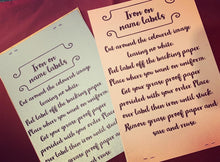 Iron on
name labels
Cut around the coloured image
leaving no white.
Peel label off the backing paper.
Place where you want on uniform.
Get your grease proof paper
provided, place over
Iron on
name labels
Cut around the coloured image
leaving no white.
Peel label off the backing paper.
Place where you want on uniform.
Get your grease proof paper
provided, place over your
label then iron until stuck.
Remove grease proof paper and
use and reuse.